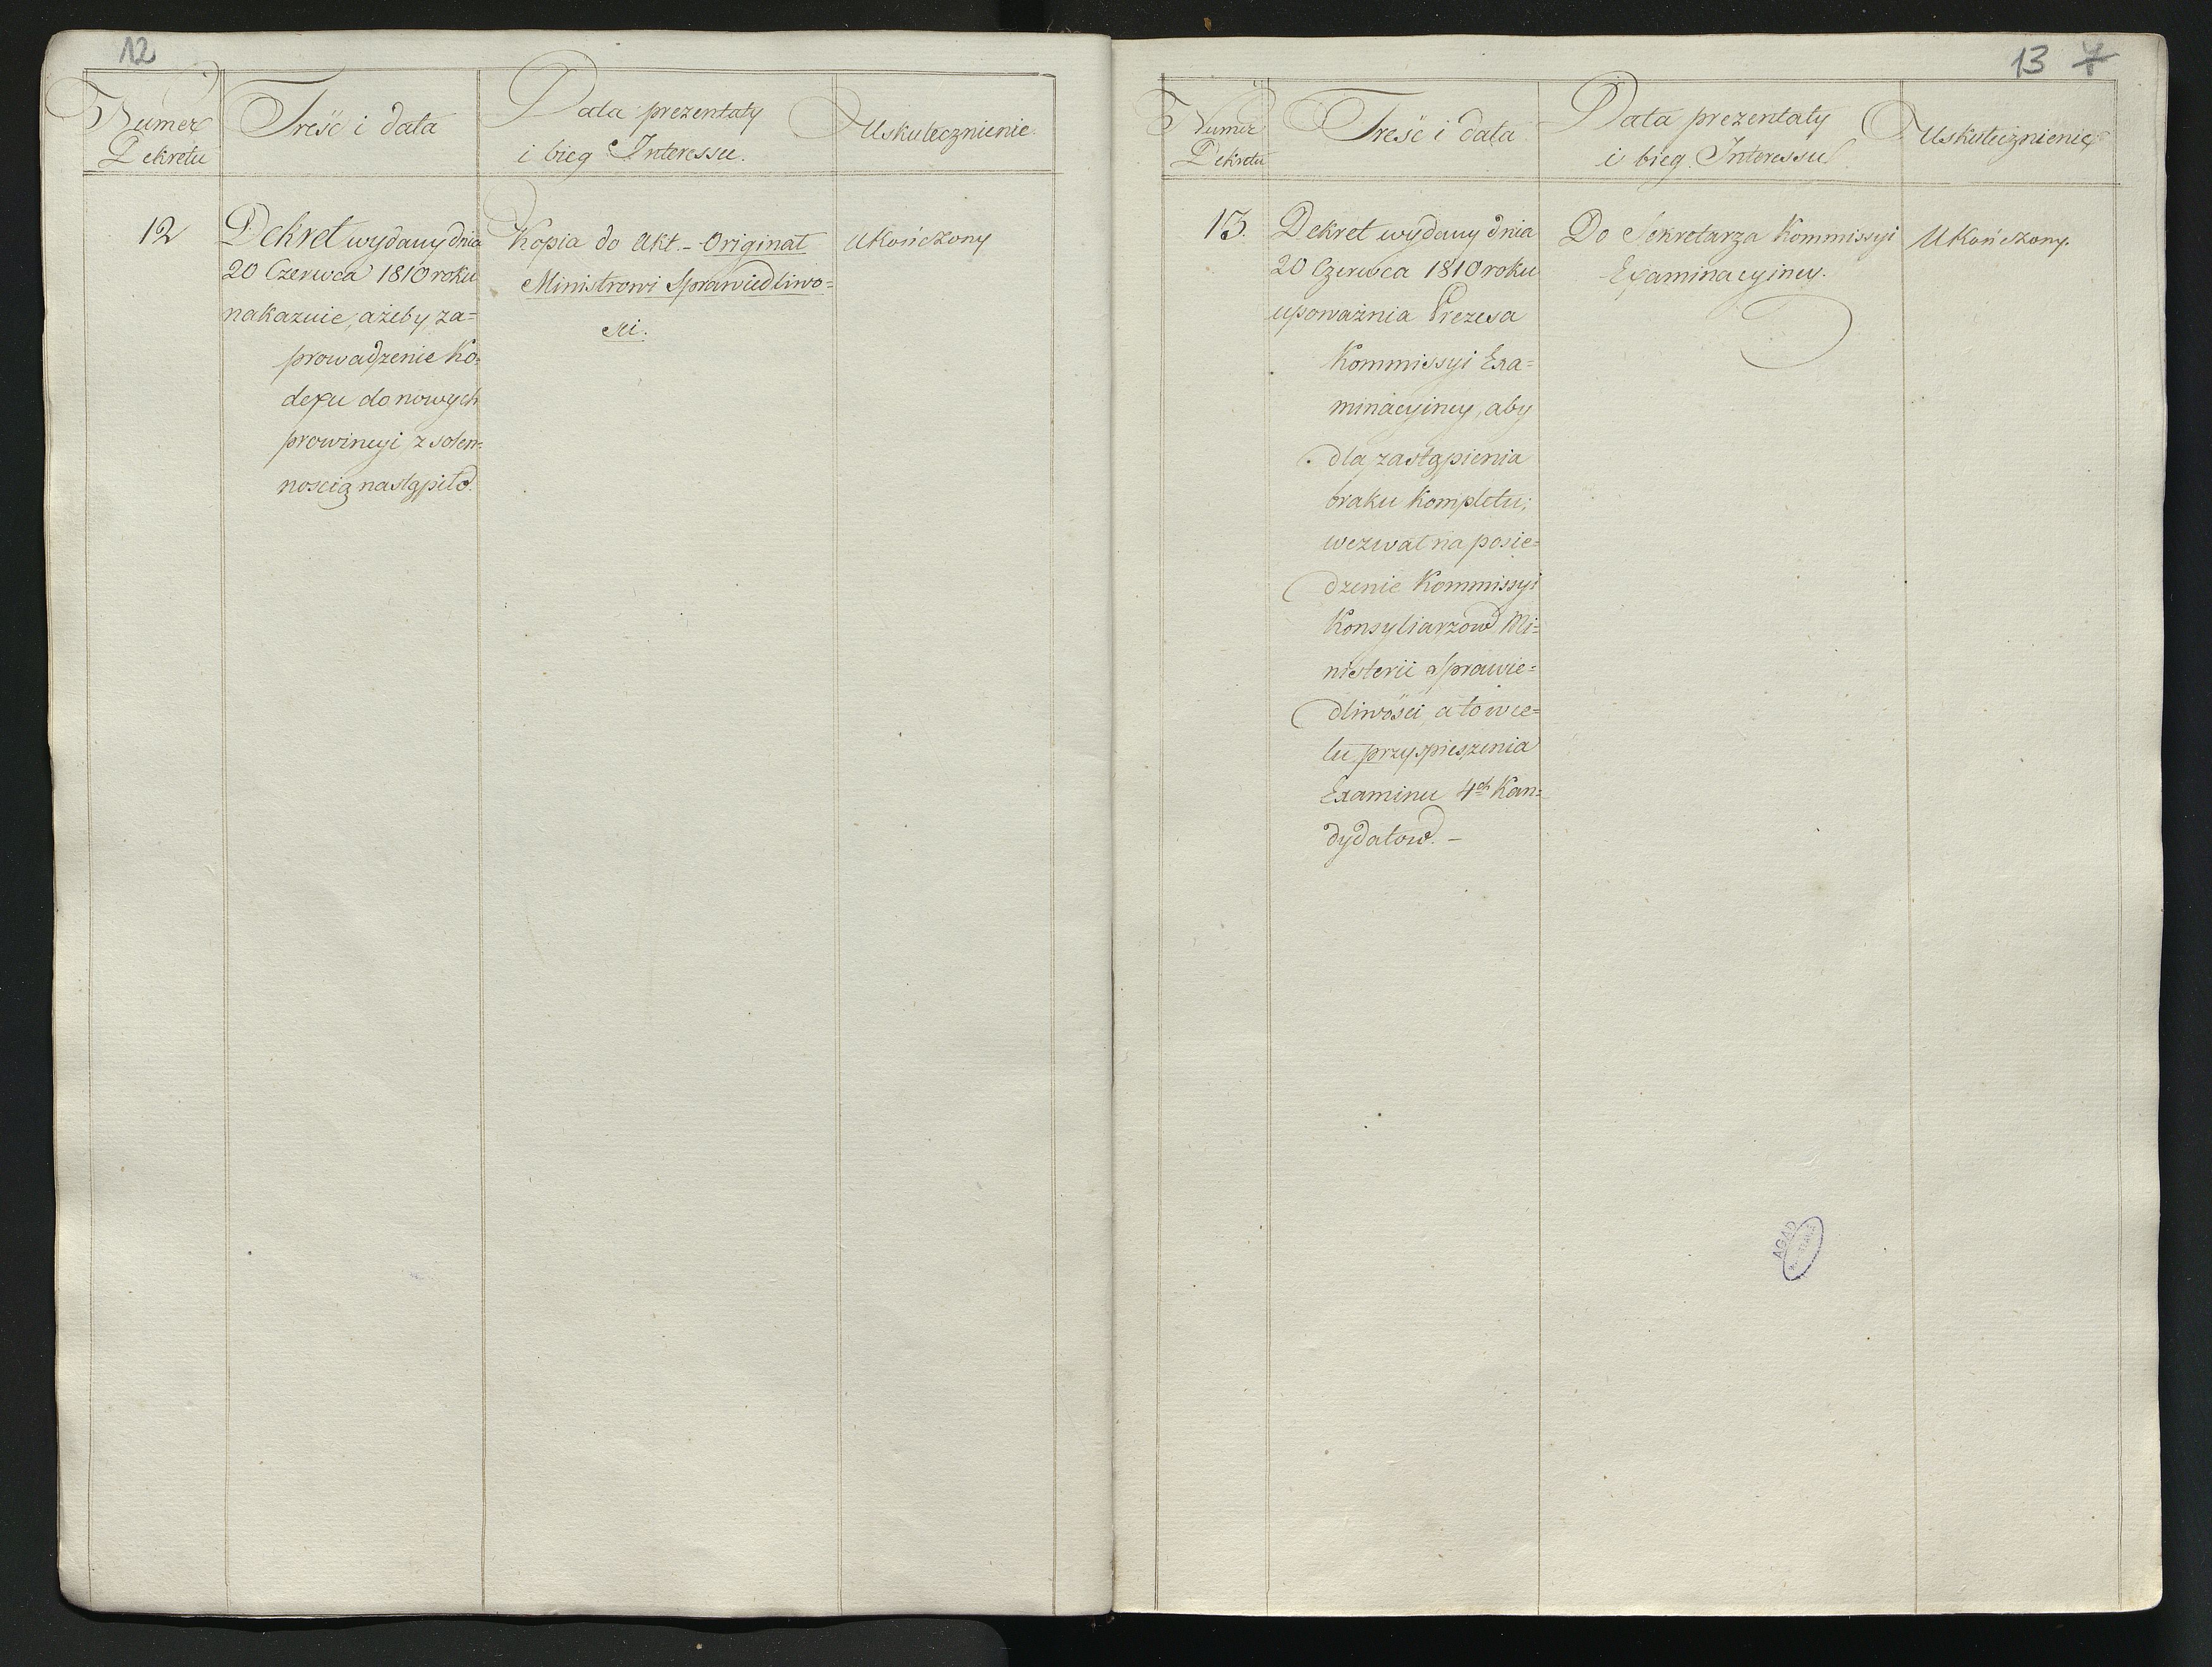 12
Numer
Dekretu
Treść i data
Data prezentaty
i bieg Interessu.
Uskutecznienie
12
Dekret wydany dnia
20 Czerwca 1810 roku
nakazuie, ażeby za=
prowadzenie Ko=
dexu do nowych
prowincyi z solen=
nością nastąpiło.
Kopia do Akt. – Originał
Ministrowi Sprawiedliwo=
ści.
Ukończony
13 7
Numer
Dekretu
Treść i data
Data prezentaty
i bieg Interessu
Uskutecznienie
13.
Dekret wydany dnia
20 Czerwca 1810 roku
upoważnia Prezesa
Kommissyi Exa=
minacyiney, aby
dla zastąpienia
braku Kompletu,
wezwał na posie=
dzenie Kommissyi
Konsyliarzow Mi=
nisterii Sprawie=
dliwości, a to w ce=
lu przyspieszenia
Examinu 4ch Kan=
dydatow. –
Do Sekretarza Kommissyi
Examinacyiney.
Ukończony.
AGAD